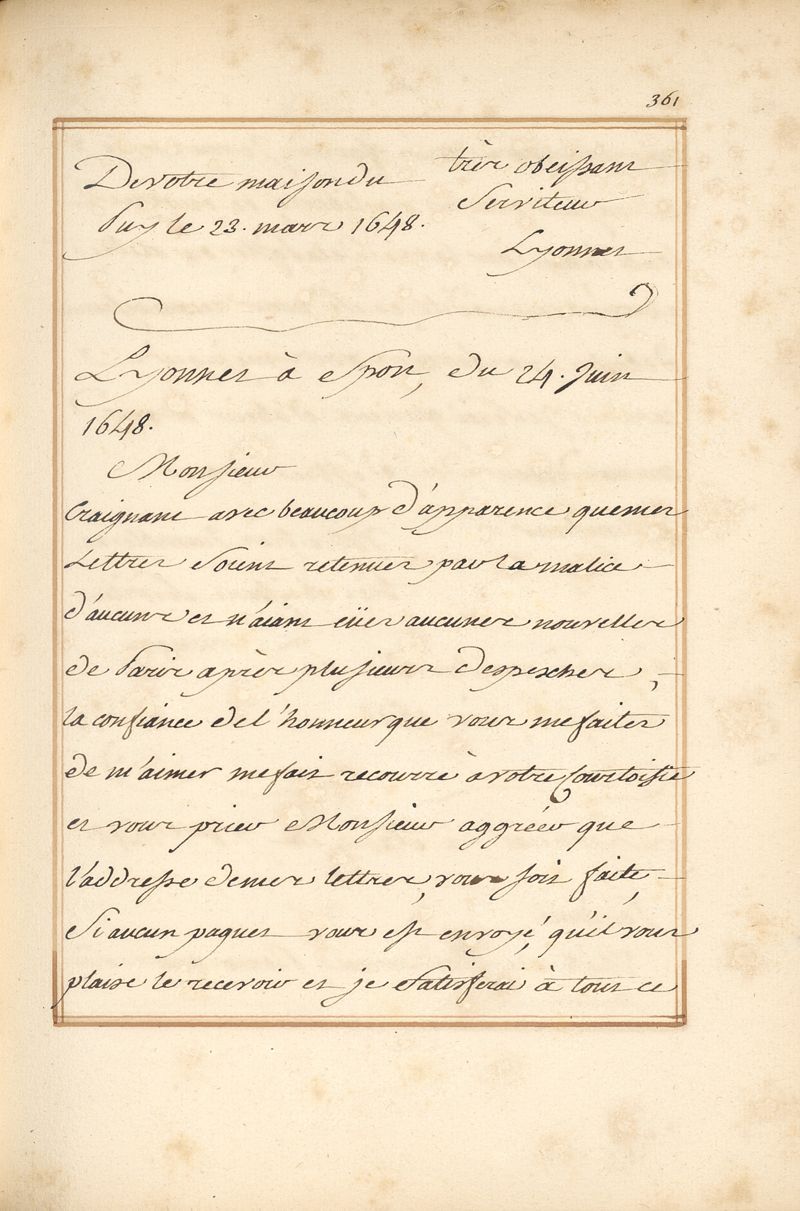 361
De votre maison du
Puy le 23. mars 1648.
très obeissant
Serviteur
Lyonnet
Lyonnet à Spon, du 24. Juin
1648.
Monsieur
Craignant avec beaucoup d'apparence que mes
Lettres soient retenues par la malice
d'aucuns et n'aiant eües aucunes nouvelles
de Paris après plusieurs despesches,
la confiance de l'honneur que vous me faites
de m'aimer me fait recourre à votre Courtoisie
et vous prier Monsieur aggréer que
l'addresse de mes lettres, vous soit faite,
Si aucun paquet vous est envoyé, qu'il vous
plaise le recevoir et je satisferai à tout ce